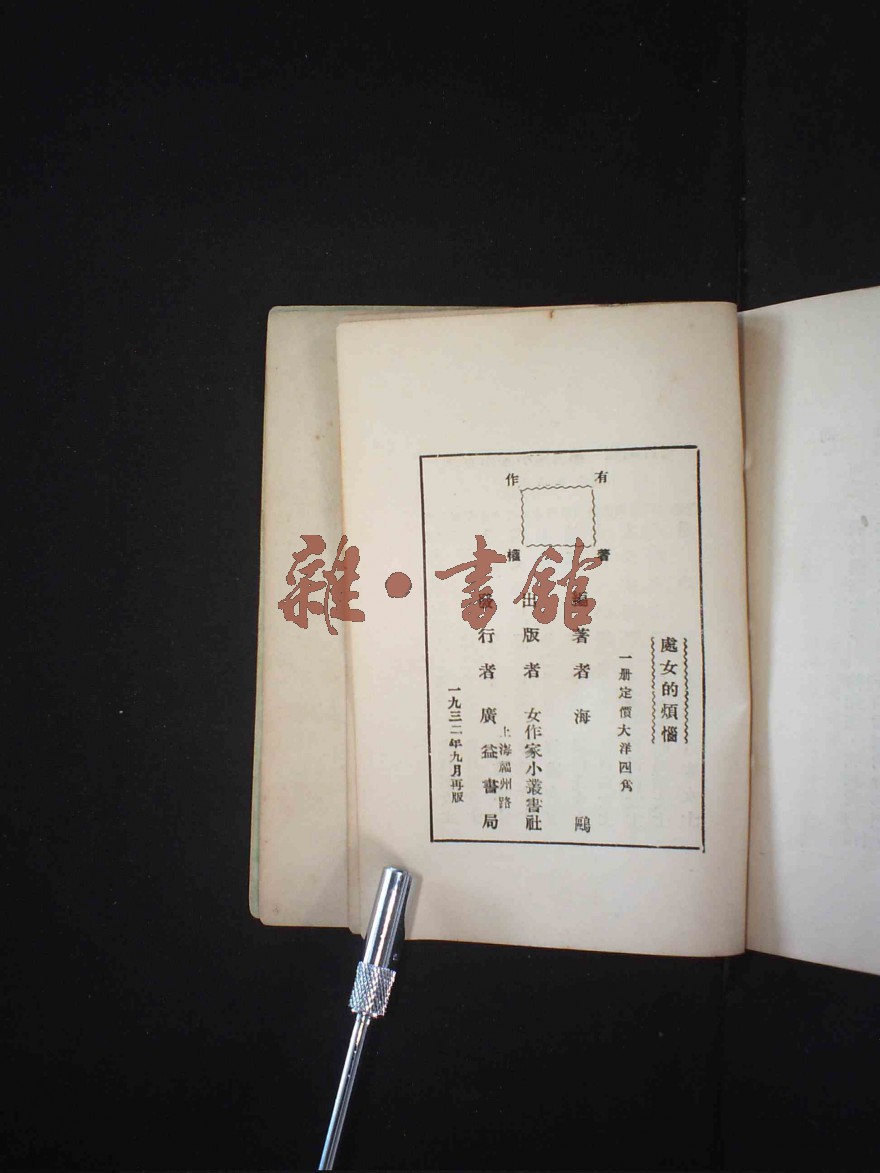 處女的煩惱
一册定價大洋四角
有著
作權
編著者 海鷗
出版者 女作家小叢書社
上海福州路
發行者 廣益書局
一九三二年九月再版
雜·書館